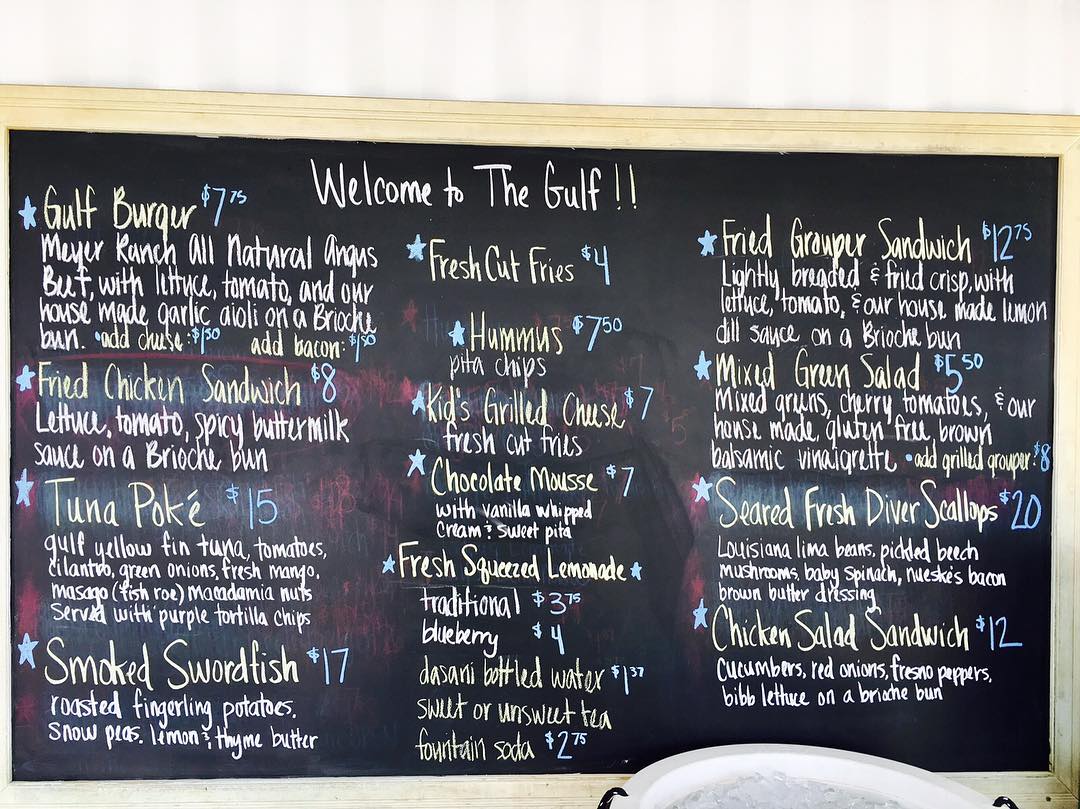 Welcome to The Gulf !!
Gulf Burger $7 75
Meyer Ranch All Natural Angus
Beef, with lettuce, tomato, and our
house made garlic aioli on a Brioche
bun. •add cheese: $1 50 add bacon: $1 50
Fried Chicken Sandwich $8
Lettuce, tomato, spicy buttermilk
sauce on a Brioche bun
Tuna Poké $15
gulf yellow fin tuna, tomatoes,
cilantro, green onions, fresh mango,
masago (fish roe) macadamia nuts
Served with purple tortilla chips
Smoked Swordfish $17
roasted fingerling potatoes,
snow peas, lemon & thyme butter
Fresh Cut Fries $4
Hummus $7 50
pita chips
Kid's Grilled Cheese $7
fresh cut fries
Chocolate Mousse $7
with vanilla whipped
cream & sweet pita
Fresh Squeezed Lemonade
traditional $3 75
blueberry $4
dasani bottled water $1 37
sweet or unsweet tea
fountain soda $2 75
Fried Grouper Sandwich $12 75
Lightly breaded & fried crisp, with
lettuce, tomato, & our house made lemon
dill sauce on a Brioche bun
Mixed Green Salad $5 50
Mixed greens, cherry tomatoes, & our
house made, gluten free, brown
balsamic vinaigrette •add grilled grouper: $8
Seared Fresh Diver Scallops $20
Louisiana lima beans, pickled beech
mushrooms, baby spinach, nueske's bacon
brown butter dressing
Chicken Salad Sandwich $12
cucumbers, red onions, fresno peppers,
bibb lettuce on a brioche bun